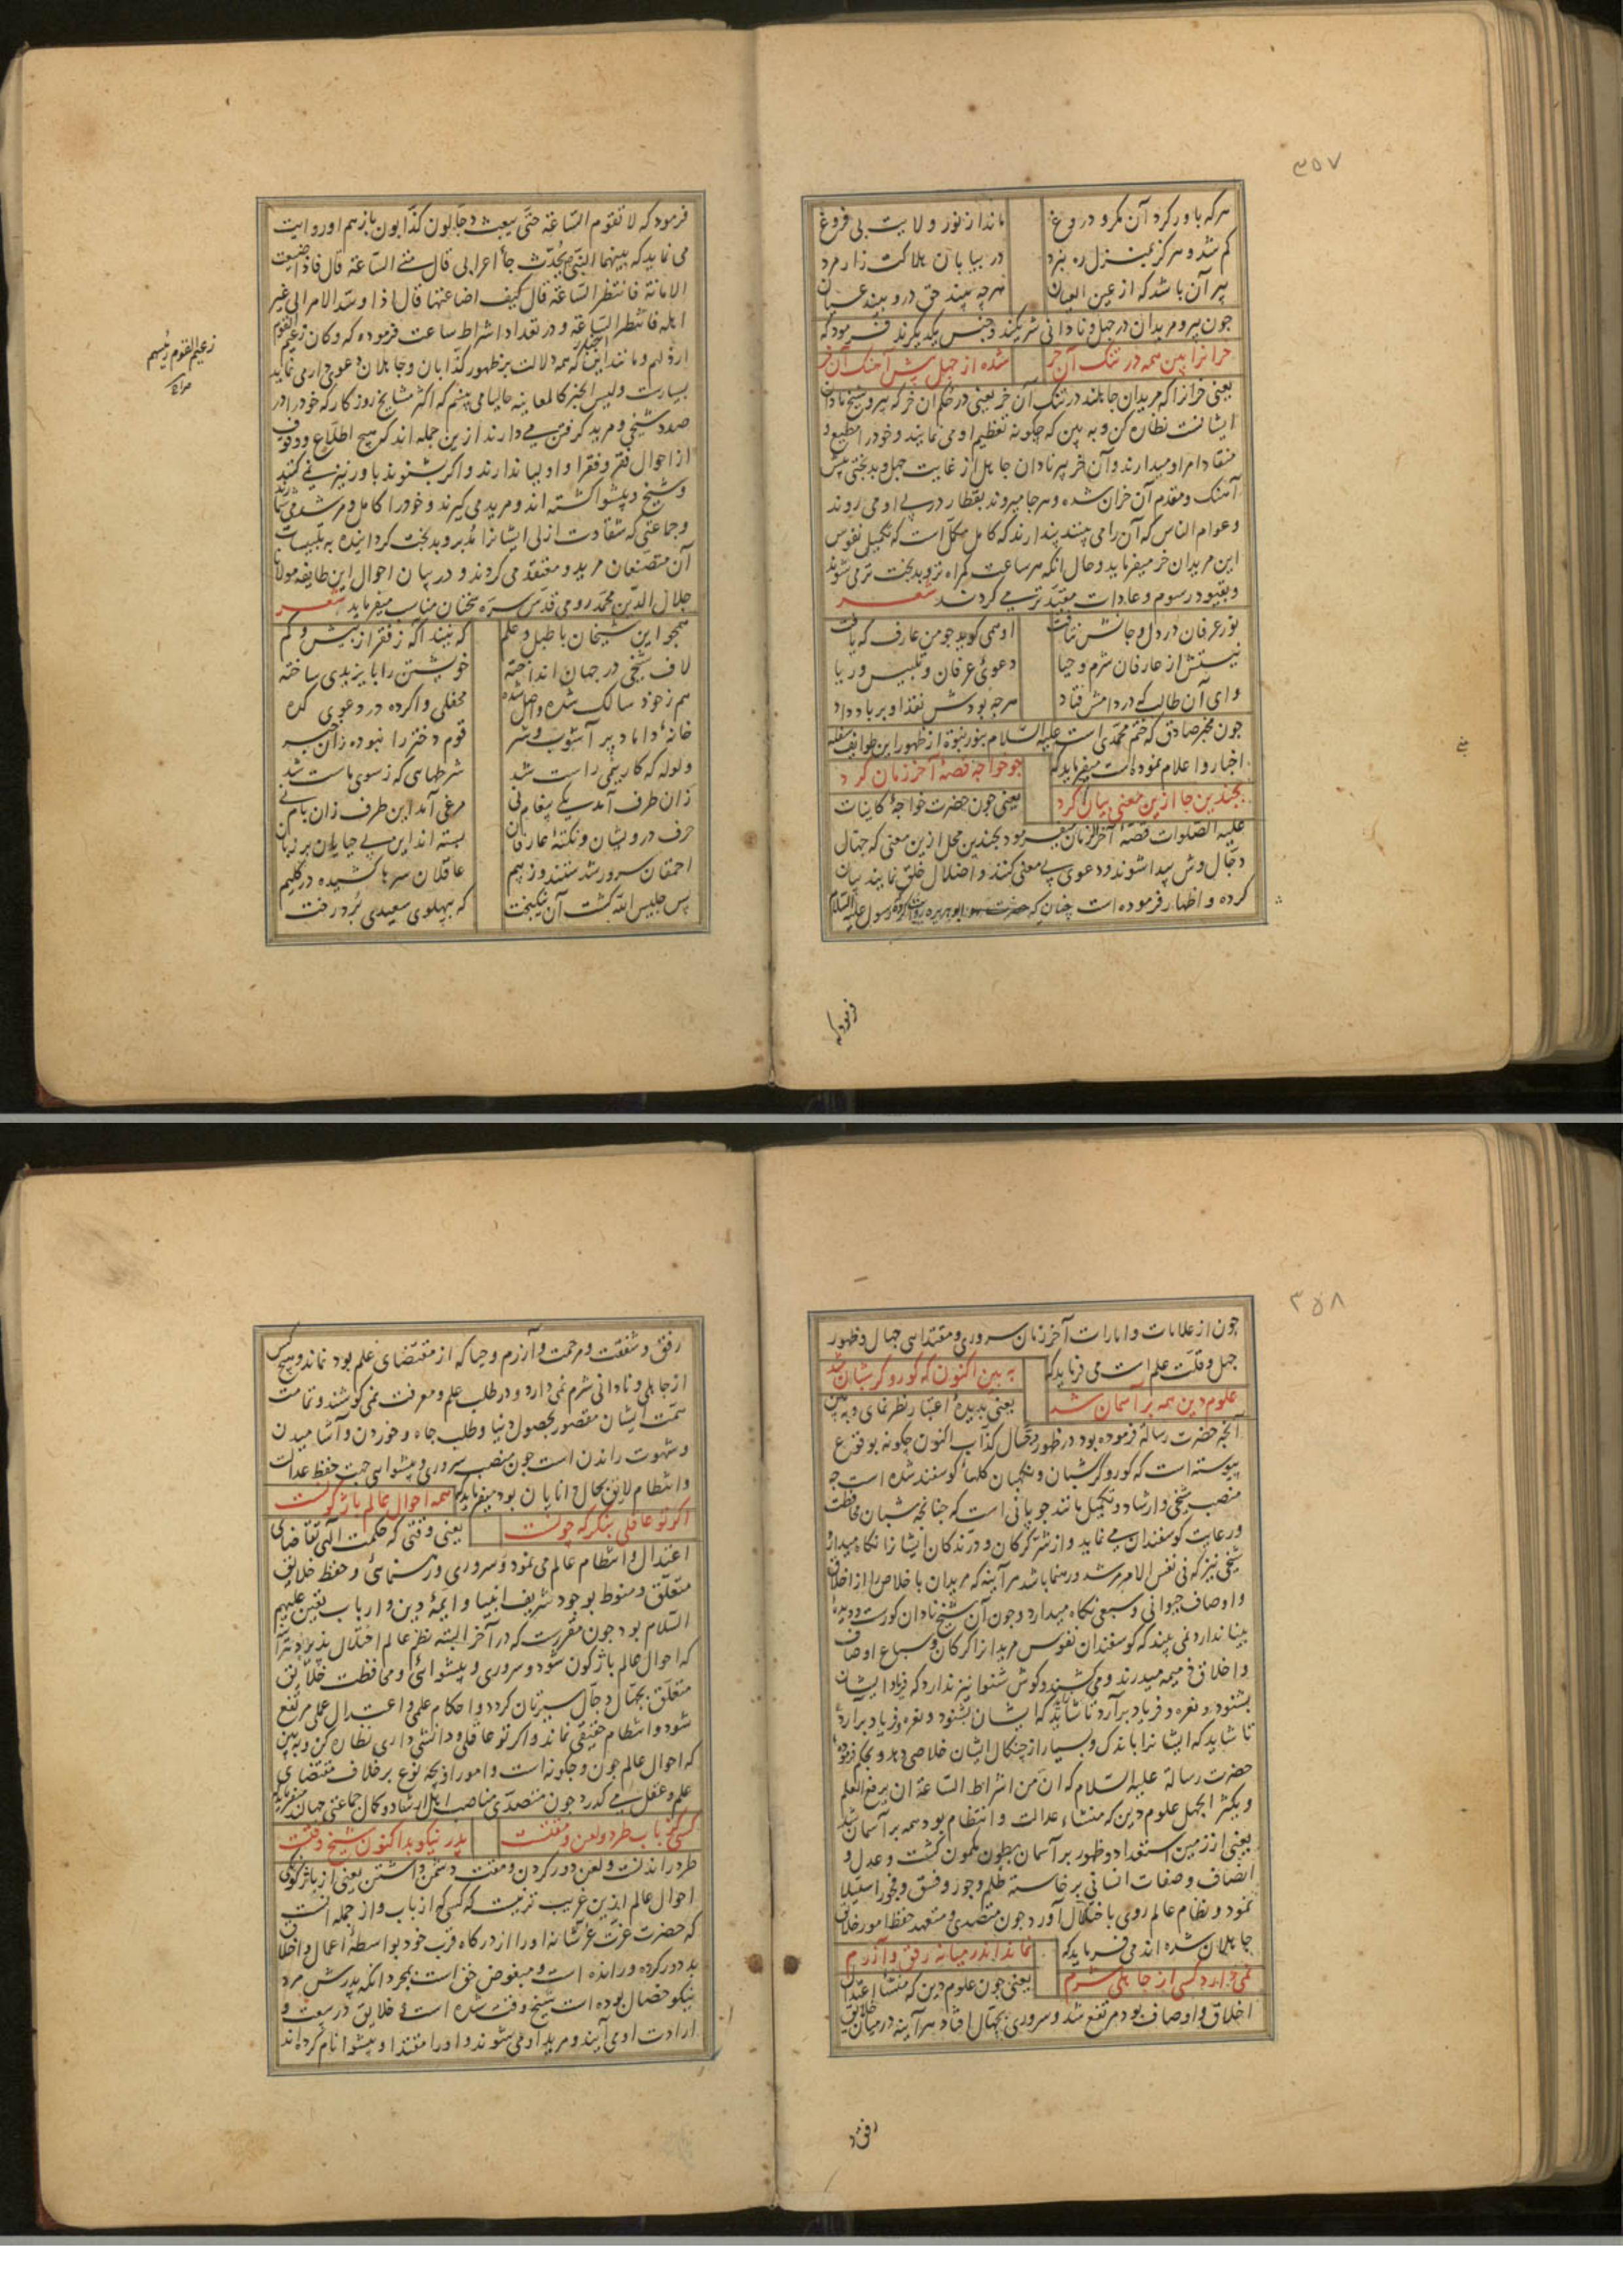 ۳۵۷
هرکه باور کرد آن مکر و دروغ ماند از نور ولایت بی فروغ
کم شد و هرگز بمنزل ره نبرد در بیابان هلاکت زار مرد
پیر آن باشد که از عین العیان هرچه بیند حق درو بیند عیان
چون پیر و مریدان در جهل و نادانی شریکند و جنس یکدیگرند فرمود که
خرانرا بین همه در تنک آن خر شده از جهل پیش آهنک آن خر
یعنی خرانرا که مریدان جاهلند در تنک آن خر یعنی در حکم آن خر که پیر و شیخ نادان
ایشانست نظاره کن و به بین که چکونه تعظیم او می نمایند و خود را مطیع و
منقاد امر او میدارند و آن خر پیر نادان جاهل از غایت جهل و بدبختی پیش
آهنک و مقدم آن خران شده و هر جا میرود بقطار در پی او می روند
و عوام الناس که آن را می بینند پندارند که کامل مکمل است که تکمیل نفوس
این مریدان خر میفرماید و حال آنکه هر ساعت کمراه تر و بدبخت تر می شوند
و بقیود رسوم و عادات مقید تر می کردند شعر
نور عرفان در دل و جانش نتافت او همی کوید چو من عارف که یافت
نیستش از عارفان شرم و حیا دعوئ عرفان و تلبیس و ریا
وای آن طالب که در دامش فتاد هرچه بودش نقد او بر باد داد
چون مخبر صادق که ختم محمدی است علیه السلام بنور نبوة از ظهور این طوایف سفله
اخبار و اعلام نموده است میفرماید که چو خواجه قصهٔ آخر زمان کرد
بچندین جا ازین معنی بیان کرد یعنی چون حضرت خواجهٔ کاینات
علیه الصلوات قصهٔ آخر الزمان میفرمود بچندین محل ازین معنی که جهال
دجال وش پیدا شوند و دعوی بی معنی کنند و اضلال خلق نمایند بیان
کرده و اظهار فرموده است چنان که ابوهریره روایت کرده رسول علیه السلام
فرمود که
فرمود که لا تقوم الساعة حتی یبعث دجالون کذابون باز هم او روایت
می نماید که بینهما النبی یحدث جأ اعرابی قال متی الساعة قال فاذا ضیعت
الامانة فانتظر الساعة قال کیف اضاعتها قال اذا وسد الامر الی غیر
اهله فانتظر الساعة و در تعداد اشراط ساعت فرموده که و کان زعیم القوم
ارذلهم و مانند این اخبار که همه دلالت بر ظهور کذابان و جاهلان دعوی دار می نماید
بسیارست و لیس الخبر کالمعاینه حالیا می بینم که اکثر مشایخ روزکار که خود را در
صدد شیخی و مرید کرفتن می دارند ازین جمله اند که هیچ اطلاع و وقوف
از احوال فقر و فقرا و اولیا ندارند و اکر بشنوند باور نیز نمی کنند
و شیخ و پیشوا کشته اند و مرید می کیرند و خود را کامل و مرشد می شمارند
و جماعتی که شقاوت ازلی ایشانرا مدبر و بدبخت کردانیده به تلبیسات
آن متصنعان مرید و معتقد می کردند و در بیان احوال این طایفه مولانا
جلال الدین محمد رومی قدس سره سخنان مناسب میفرماید شعر
همچو این شیخان با طبل و علم که نیند آکه ز فقر از بیش و کم
لاف شیخی در جهان انداخته خویشتن را بایزیدی ساخته
هم ز خود سالک شده واصل شده محفلی واکرده در دعوی کده
خانهٔ داماد پر آشوب و شر قوم دختر را نبوده زان خبر
ولوله که کار نیمی راست شد شرطهای که ز سوی ماست شد
زان طرف آمد یکی پیغام نی مرغی آمد این طرف زان بام نی
حرف درویشان و نکتهٔ عارفان بسته اند این بی حیایان بر زبان
احمقان سرور شدستند و ز بیم عاقلان سرها کشیده در کلیم
پس جلیس الله کشت آن نیکبخت که بپهلوی سعیدی برد رخت
زعیم القوم رئیسهم
۳۵۸
چون از علامات و امارات آخر زمان سروری و مقتدایی جهال و ظهور
جهل و قلت علم است می فرماید که به بین اکنون که کور و کر شبان شد
علوم دین همه بر آسمان شد یعنی بدیدهٔ اعتبار نظر نمای و به بین
آنچه حضرت رسالة فرموده بود در ظهور دجال کذاب اکنون چکونه بوقوع
پیوسته است که کور و کر شبان و نکهبان کلهاء کوسفند شده است چه
منصب شیخی و ارشاد و تکمیل مانند چوپانی است که چنانچه شبان محافظت
و رعایت کوسفندان می نماید و از شر کرکان و درندکان ایشانرا نکاه میدارد
شیخی نیز که فی نفس الامر مرشد و رهنما باشد هر آینه که مریدان با خلاص را از اخلاق
و اوصاف حیوانی و سبعی نکاه میدارد و چون آن شیخ نادان کورست و دیدهٔ
بینا ندارد نمی بیند که کوسفندان نفوس مریدانرا کرکان و سباع اوصاف
و اخلاق ذمیمه میدرند و می کشند و کوش شنوا نیز ندارد که فریاد ایشان
بشنود و نعره و فریاد برآرد تا شاید که ایشان بشنود و نعره و فریاد برآرد
تا شاید که ایشانرا باندک و بسیار از چنکال ایشان خلاصی دهد و بحکم فرموده
حضرت رسالة علیه السلام که ان من اشراط الساعة ان یرفع العلم
و یکثر الجهل علوم دین که منشاء عدالت و انتظام بود همه بر آسمان شد
یعنی از زمین استعداد و ظهور بر آسمان بطون مکمون کشت و عدل و
انصاف و صفات انسانی برخاسته ظلم و جور و فسق و فجور استیلا
نمود و نظام عالم روی باختلال آورد چون متصدی و متعهد حفظ امور خلایق
جاهلان شده اند می فرماید که نماند اندر میانه رفق و آزرم
نمی دارد کسی از جاهلی شرم یعنی چون علوم دین که منشأ اعتدال
اخلاق و اوصاف بود مرتفع شد و سروری بجهال افتاد هر آینه در میان خلایق
رفق و
رفق و شفقت و مرحمت و آزرم و حیا که از مقتضای علم بود نماند و هیچ کس
از جاهلی و نادانی شرم نمی دارد و در طلب علم و معرفت نمی کوشند و تمامت
همت ایشان مقصور بحصول دنیا و طلب جاه و خوردن و آشامیدن
و شهوت راندن است چون منصب سروری و پیشوایی جهت حفظ عدالت
و انتظام لایق بحال دانایان بود میفرماید که همه احوال عالم باژکونست
اکر تو عاقلی بنکر که چونست یعنی وقتی که حکمت الهی تقاضای
اعتدال و انتظام عالم می نمود و سروری و رهنمائی و حفظ خلایق
متعلق و منوط بوجود شریف انبیا و ایمهٔ دین و ارباب یقین علیهم
السلام بود چون مقررست که در آخر البته نظم عالم اختلال پذیرد
که احوال عالم باژکون شود و سروری و پیشوائی و محافظت خلایق
متعلق بجهال و دجال سیرتان کردد و احکام علمی و اعتدال عملی مرتفع
شود و انتظام حقیقی نماند و اکر تو عاقلی و دانشی داری نظاره کن و به بین
که احوال عالم چون و چکونه است و امور از چه نوع بر خلاف مقتضای
علم و عقل می کذرد چون متصدی مناصب اهل ارشاد و کمال جماعتی جهال میفرماید
کسی کز باب طرد و لعن و مقتست پدر نیکو بد اکنون شیخ وقتست
طرد راندنست و لعن دور کردن و مقت دشمن داشتن یعنی از باژکونی
احوال عالم ازین غریب تر نیست که کسی که از باب و از جمله آنست
که حضرت عزت عز شانه او را از درکاه قرب خود بواسطهٔ اعمال و اخلاق
بد دور کرده و رانده است و مبغوض حق است بمجرد آنکه پدرش مرد
نیکو خصال بوده است شیخ وقت شده است و خلایق در بیعت و
ارادت او می آیند و مرید او می شوند و او را مقتدا و پیشوا نام کرده اند